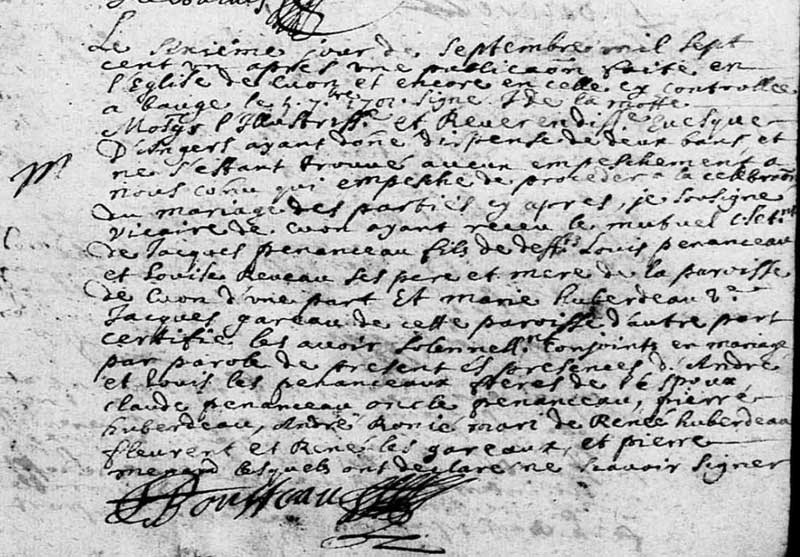 Le sixième jour de Septembre mil sept
cent un apres une publicaôn faite en
l'Eglise de Cuon et encore en celle cy controllee
a baugé le 5. 7.bre 1701. signé J de la motte
l'Illustriss.e et Reverendiss.e Evesque
D'Angers ayant doñé dispense de deux bans, et
ne s'estant trouvé aucun empeschement a
nous conu qui empesche de proceder a la celebraôn
du mariage des parties cy apres, je sousigné
vicaire de Cuon ayant receu le mutuel
de Jacques penanceau fils de deff.ts Louis penanceau
et Louise Reveau ses pere et mere de la paroisse
de Cuon d'une part Et marie huberdeau v.e
Jacques gareau de cette paroisse d'autre part
certifie les avoir solennell.nt Conjoints en mariage
par parole de present és presences d'André
et Louis les penanceaux freres de l'Espoux,
Claude penanceau oncle penanceau, pierre
huberdeau, André mari de Renée huberdeau
fleurent et René les gareaux, et pierre
menard lesquels ont declaré ne scavoir signer